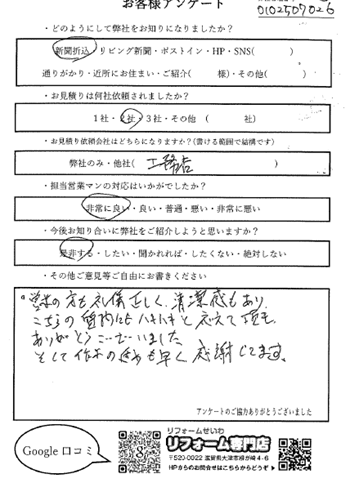 お客様アンケート
0102507026
・どのようにして弊社をお知りになりましたか？
新聞折込・リビング新聞・ポストイン・HP・SNS(　　　)
通りがかり・近所にお住まい・ご紹介(　　　様)・その他(　　　)
・お見積りは何社依頼されましたか？
1社・2社・3社・その他 (　　　社)
・お見積り依頼会社はどちらになりますか？(書ける範囲で結構です)
弊社のみ・他社( 工務店 )
・担当営業マンの対応はいかがでしたか？
非常に良い・良い・普通・悪い・非常に悪い
・今後お知り合いに弊社をご紹介しようと思いますか？
是非する・したい・聞かれれば・したくない・絶対しない
・その他ご意見等ご自由にお書きください
の方も礼儀正しく、清潔感もあり、
こちらの質問にもハキハキと応えて頂き、
ありがとうございました。
そして作業の も早く感謝してます。
アンケートのご協力ありがとうございました
Google 口コミ
リフォームせいわ
リフォーム専門店
〒520-0022 滋賀県大津市柳が崎4-6
HPからのお問合せはこちらからどうぞ